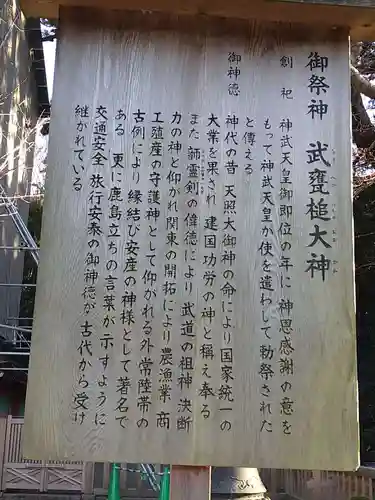 御祭神 武甕槌大神
創祀 神武天皇御即位の年に 神恩感謝の意を
もって神武天皇が使を遣わして勅祭された
と傳える
御神徳 神代の昔 天照大御神の命により国家統一の
大業を果され 建国功労の神と称え奉る
また 韴霊剣の偉徳により 武道の祖神 決断
力の神と仰がれ関東の開拓により 農漁業 商
工殖産の守護神として仰がれる外常陸帯の
古例により縁結び安産の神様として著名で
ある 更に鹿島立ちの言葉が示すように
交通安全 旅行安泰の御神徳が 古代から受け
継がれている